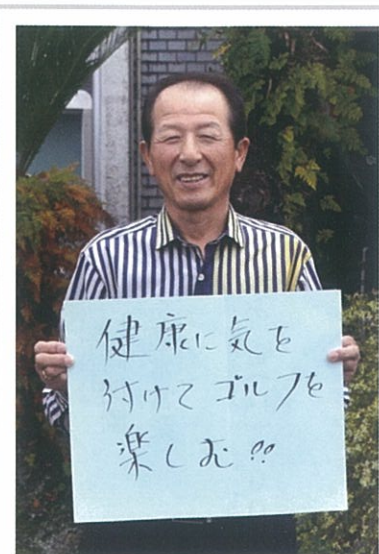 健康に気を
付けてゴルフを
楽しむ!!